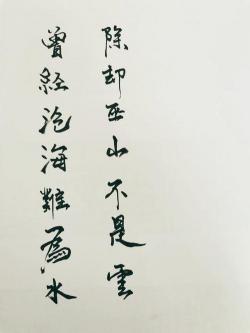 曾经沧海難爲水
除却巫山不是雲